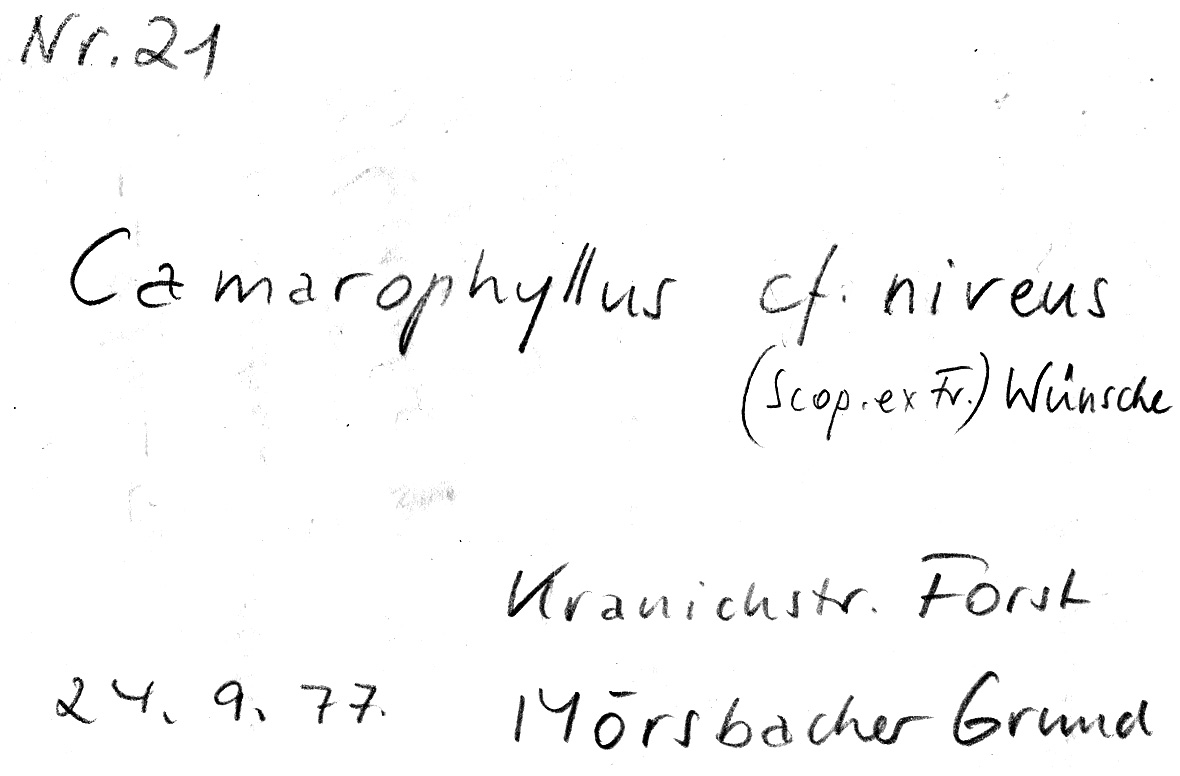 Nr. 21
Camarophyllus cf. niveus
(Scop. ex Fr.) Wünsche
Kranichstr. Forst
24. 9. 77. Mörsbacher Grund